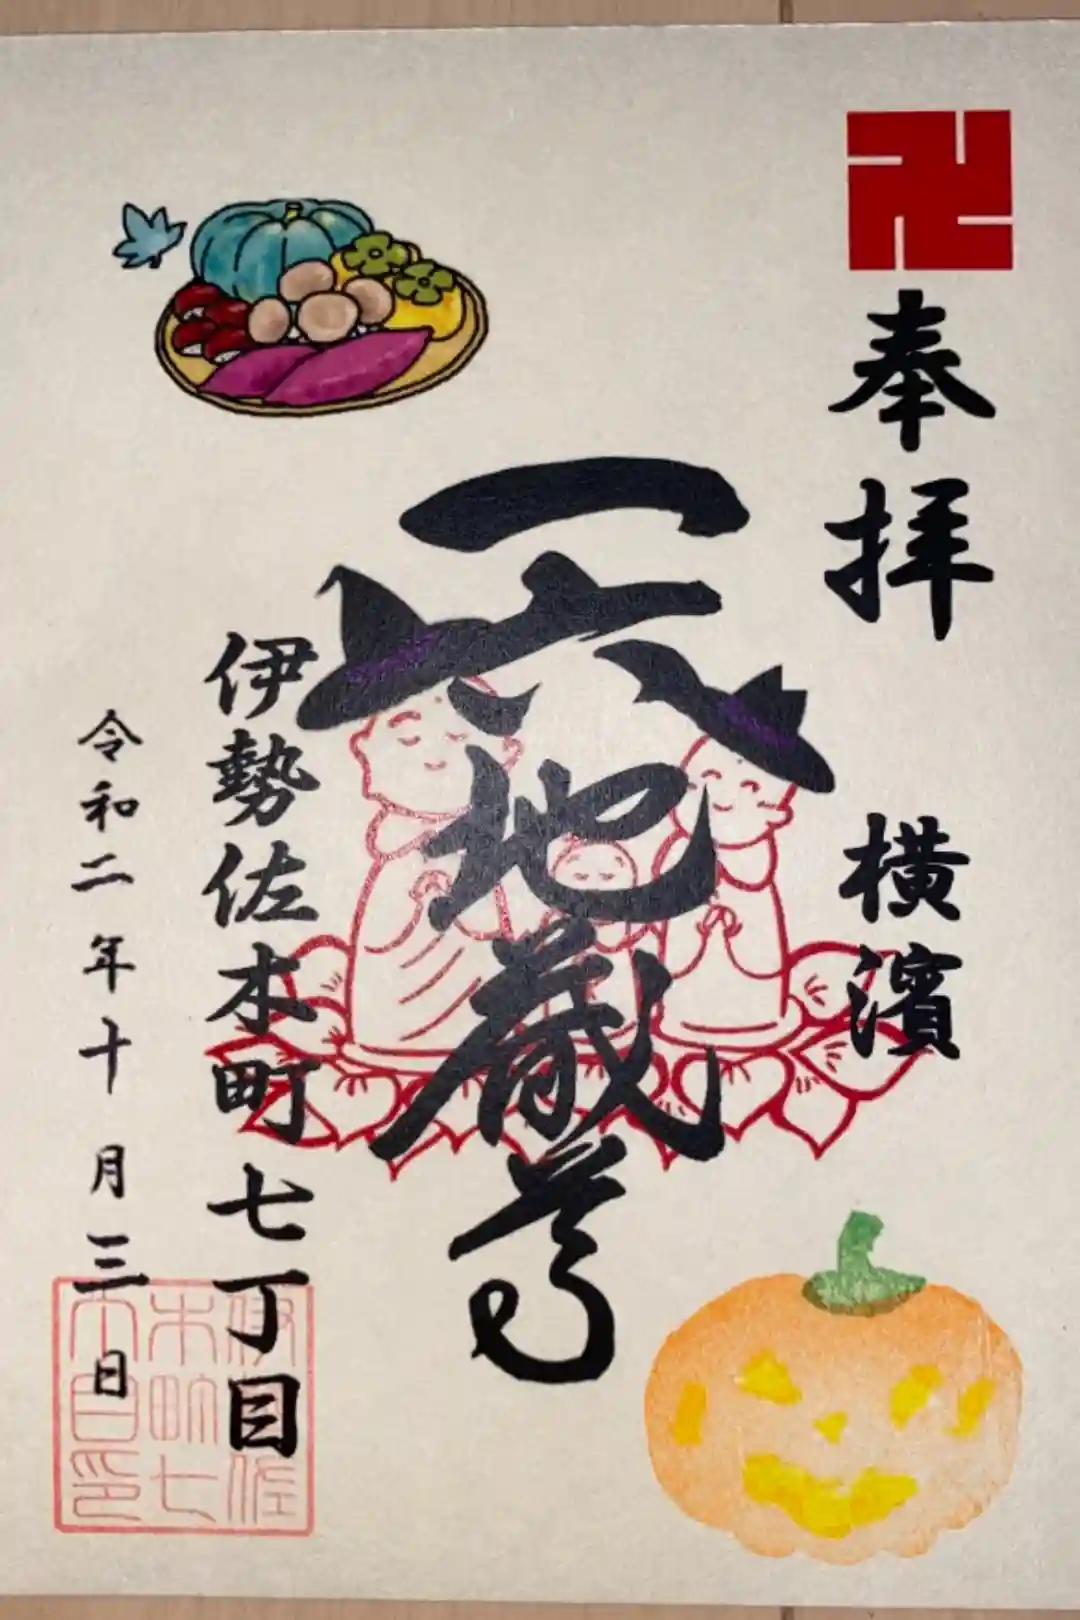 卍
奉拝
横濱
一六地蔵尊
伊勢佐木町七丁目
令和二年十月三日
伊勢佐
木町七
丁目印